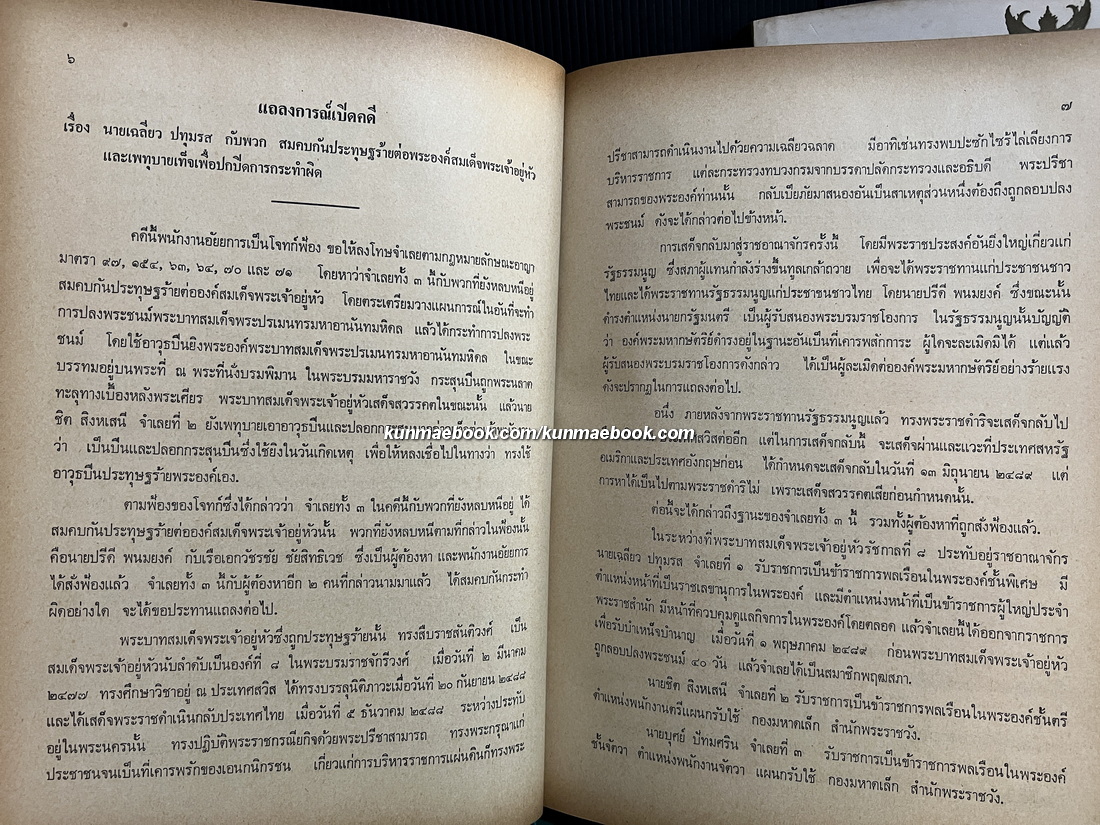 ๖
แถลงการณ์เปิดคดี
เรื่อง นายเฉลียว ปทุมรส กับพวก สมคบกันประทุษฐร้ายต่อพระองค์สมเด็จพระเจ้าอยู่หัว
และเพทุบายเท็จเพื่อปกปิดการกระทำผิด
คดีนี้พนักงานอัยยการเป็นโจทก์ฟ้อง ขอให้ลงโทษจำเลยตามกฎหมายลักษณะอาญา
มาตรา ๙๗, ๑๕๔, ๖๓, ๖๔, ๗๐ และ ๗๑ โดยหาว่าจำเลยทั้ง ๓ นี้กับพวกที่ยังหลบหนีอยู่
สมคบกันประทุษฐร้ายต่อองค์สมเด็จพระเจ้าอยู่หัว โดยตระเตรียมวางแผนการณ์ในอันที่จะทำ
การปลงพระชนม์พระบาทสมเด็จพระปรเมนทรมหาอานันทมหิดล แล้วได้กระทำการปลงพระ
ชนม์ โดยใช้อาวุธปืนยิงพระองค์พระบาทสมเด็จพระปรเมนทรมหาอานันทมหิดล ในขณะ
บรรทมอยู่บนพระที่ ณ พระที่นั่งบรมพิมาน ในพระบรมมหาราชวัง กระสุนปืนถูกพระนลาต
ทะลุทางเบื้องหลังพระเศียร พระบาทสมเด็จพระเจ้าอยู่หัวเสด็จสวรรคตในขณะนั้น แล้วนาย
ชิต สิงหเสนี จำเลยที่ ๒ ยังเพทุบายเอาอาวุธปืนและปลอกกระสุน
ว่า เป็นปืนและปลอกกระสุนปืนซึ่งใช้ยิงในวันเกิดเหตุ เพื่อให้หลงเชื่อไปในทางว่า ทรงใช้
อาวุธปืนประทุษฐร้ายพระองค์เอง.
ตามฟ้องของโจทก์ซึ่งได้กล่าวว่า จำเลยทั้ง ๓ ในคดีนี้กับพวกที่ยังหลบหนีอยู่ ได้
สมคบกันประทุษฐร้ายต่อองค์สมเด็จพระเจ้าอยู่หัวนั้น พวกที่ยังหลบหนีตามที่กล่าวในฟ้องนั้น
คือนายปรีดี พนมยงค์ กับเรือเอกวัชรชัย ชัยสิทธิเวช ซึ่งเป็นผู้ต้องหา และพนักงานอัยยการ
ได้สั่งฟ้องแล้ว จำเลยทั้ง ๓ นี้กับผู้ต้องหาอีก ๒ คนที่กล่าวนามมาแล้ว ได้สมคบกันกระทำ
ผิดอย่างใด จะได้ขอประทานแถลงต่อไป.
พระบาทสมเด็จพระเจ้าอยู่หัวซึ่งถูกประทุษฐร้ายนั้น ทรงสืบราชสันติวงศ์ เป็น
สมเด็จพระเจ้าอยู่หัวนับลำดับเป็นองค์ที่ ๘ ในพระบรมราชจักรีวงศ์ เมื่อวันที่ ๒ มีนาคม
๒๔๗๗ ทรงศึกษาวิชาอยู่ ณ ประเทศสวิส ได้ทรงบรรลุนิติภาวะเมื่อวันที่ ๒๐ กันยายน ๒๔๘๘
และได้เสด็จพระราชดำเนินกลับประเทศไทย เมื่อวันที่ ๕ ธันวาคม ๒๔๘๘ ระหว่างประทับ
อยู่ในพระนครนั้น ทรงปฏิบัติพระราชกรณียกิจด้วยพระปรีชาสามารถ ทรงพระกรุณาแก่
ประชาชนจนเป็นที่เคารพรักของเอนกนิกรชน เกี่ยวแก่การบริหารราชการแผ่นดินก็ทรงพระ
๗
ปรีชาสามารถดำเนินงานไปด้วยความเฉลียวฉลาด มีอาทิเช่นทรงพบปะซักไซร้ไล่เลียงการ
บริหารราชการ แต่ละกระทรวงทบวงกรมจากบรรดาปลัดกระทรวงและอธิบดี พระปรีชา
สามารถของพระองค์ท่านนั้น กลับเบียภัยมาสนองอันเป็นสาเหตุส่วนหนึ่งต้องถึงถูกลอบปลง
พระชนม์ ดังจะได้กล่าวต่อไปข้างหน้า.
การเสด็จกลับมาสู่ราชอาณาจักรครั้งนี้ โดยมีพระราชประสงค์อันยิ่งใหญ่เกี่ยวแก่
รัฐธรรมนูญ ซึ่งสภาผู้แทนกำลังร่างขึ้นทูลเกล้าถวาย เพื่อจะได้พระราชทานแก่ประชาชนชาว
ไทยและได้พระราชทานรัฐธรรมนูญแก่ประชาชนชาวไทย โดยนายปรีดี พนมยงค์ ซึ่งขณะนั้น
ดำรงตำแหน่งนายกรัฐมนตรี เป็นผู้รับสนองพระบรมราชโองการ ในรัฐธรรมนูญนั้นบัญญัติ
ว่า องค์พระมหากษัตริย์ดำรงอยู่ในฐานะอันเป็นที่เคารพสักการะ ผู้ใดจะละเมิดมิได้ แต่แล้ว
ผู้รับสนองพระบรมราชโองการดังกล่าว ได้เป็นผู้ละเมิดต่อองค์พระมหากษัตริย์อย่างร้ายแรง
ดังจะปรากฏในการแถลงต่อไป.
อนึ่ง ภายหลังจากพระราชทานรัฐธรรมนูญแล้ว ทรงพระราชดำริจะเสด็จกลับไป
สวิสต่ออีก แต่ในการเสด็จกลับนี้ จะเสด็จผ่านและแวะที่ประเทศสหรัฐ
kunmaebook.com/kunmaebook.com
อเมริกาและประเทศอังกฤษก่อน ได้กำหนดจะเสด็จกลับในวันที่ ๑๓ มิถุนายน ๒๔๘๙ แต่
การหาได้เป็นไปตามพระราชดำริไม่ เพราะเสด็จสวรรคตเสียก่อนกำหนดนั้น.
ต่อนี้จะได้กล่าวถึงฐานะของจำเลยทั้ง ๓ นี้ รวมทั้งผู้ต้องหาที่ถูกสั่งฟ้องแล้ว.
ในระหว่างที่พระบาทสมเด็จพระเจ้าอยู่หัวรัชกาลที่ ๘ ประทับอยู่ราชอาณาจักร
นายเฉลียว ปทุมรส จำเลยที่ ๑ รับราชการเป็นข้าราชการพลเรือนในพระองค์ชั้นพิเศษ มี
ตำแหน่งหน้าที่เป็นราชเลขานุการในพระองค์ และมีตำแหน่งหน้าที่เป็นข้าราชการผู้ใหญ่ประจำ
พระราชสำนัก มีหน้าที่ควบคุมดูแลกิจการในพระองค์โดยตลอด แล้วจำเลยนี้ได้ออกจากราชการ
เพื่อรับบำเหน็จบำนาญ เมื่อวันที่ ๑ พฤษภาคม ๒๔๘๙ ก่อนพระบาทสมเด็จพระเจ้าอยู่หัว
ถูกลอบปลงพระชนม์ ๔๐ วัน แล้วจำเลยได้เป็นสมาชิกพฤฒสภา.
นายชิต สิงหเสนี จำเลยที่ ๒ รับราชการเป็นข้าราชการพลเรือนในพระองค์ชั้นตรี
ตำแหน่งพนักงานตรีแผนกรับใช้ กองมหาดเล็ก สำนักพระราชวัง.
นายบุศย์ ปัทมศริน จำเลยที่ ๓ รับราชการเป็นข้าราชการพลเรือนในพระองค์
ชั้นจัตวา ตำแหน่งพนักงานจัตวา แผนกรับใช้ กองมหาดเล็ก สำนักพระราชวัง.